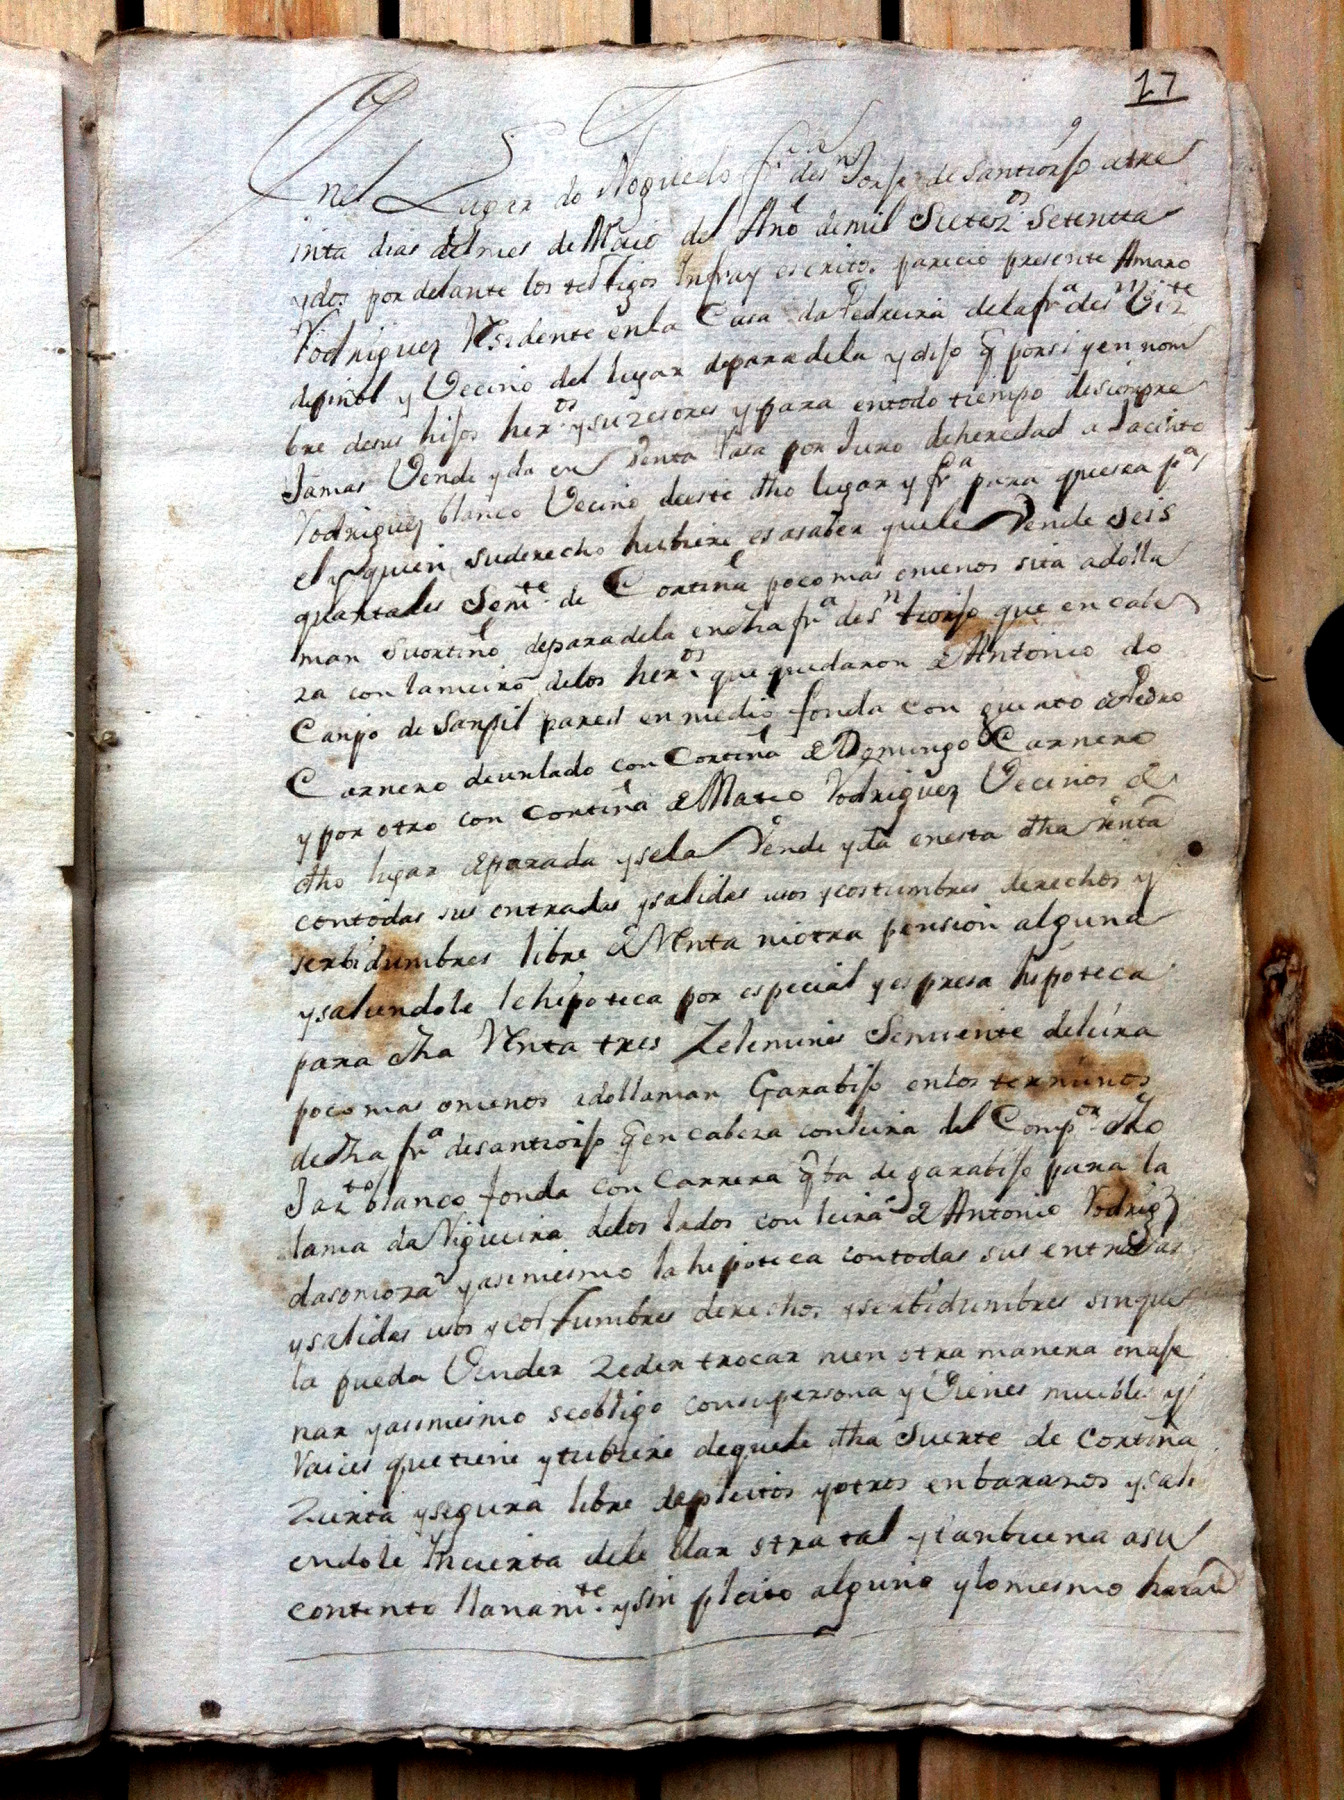 17
Enel Lugar do Noguedo fra. de sn Jorje de Santiorjo atre
inta dias del mes de Maio del Año demil Setezos Setentta
ydos por delante los testigos Infray escritos parecio presente Amaro
Rodriguez Residente enla Casa da Pedreira dela fra de sn Vizte
depinol y Vecino del lugar deparadela y dijo q porsi yen nom
bre desus hijos heros ysuzesores y para entodo tiempo desiempre
Jamas Vende yda en Venta Rasa por Juro deheredad a Jacinto
Rodriguez blanco Vecino deeste dho lugar y fra para quesea pa
el y quien suderecho hubiere esasaber quele Vende seis
quartales Semte de Cortiña pocomas omenos sita adolla
man Suortiño deparadela endha fra de sn tiorjo que encave
za con lameiro delos heros que quedaron de Antonio do
Canpo de Sanfil pared enmedio fonda con guerto de Pedro
Carnero deunlado con Cortiña de Domingo Carnero
y por otro con Cortiña de Mateo Rodriguez Vecinos de
dho lugar deparada ysela Vende yda enesta dha venta
contodas sus entradas ysalidas usos ycostumbres derechos y
serbidumbres libre de Renta niotra pension alguna
ysaliendole lehipoteca por especial yespresa hipoteca
para dha Venta tres Zelemines Semiente deleira
pocomas omenos adollaman Garabijo enlos terminos
dedha fra desantiorjo q encabeza conleira del Compor dho
Jazto blanco fonda con Carrera q ba de garabijo para la
lama da Vigueira delos lados con leira de Antonio Rodrigz
dasomoza yasimesmo lahipoteca contodas sus entradas
ysalidas usos ycostumbres derechos yserbidumbres sinque
la pueda Vender Zeder trocar nien otra manera enaje
nar yasimesmo seobligo consupersona y Vienes muebles y
Raices quetiene ytubiere dequele dha Suerte de Cortiña
Zierta ysegura libre depleitos yotros enbarazos ysali
endole Incierta dele dar otra tal ytanbuena asu
contento llanamte ysin pleito alguno ylomesmo haran